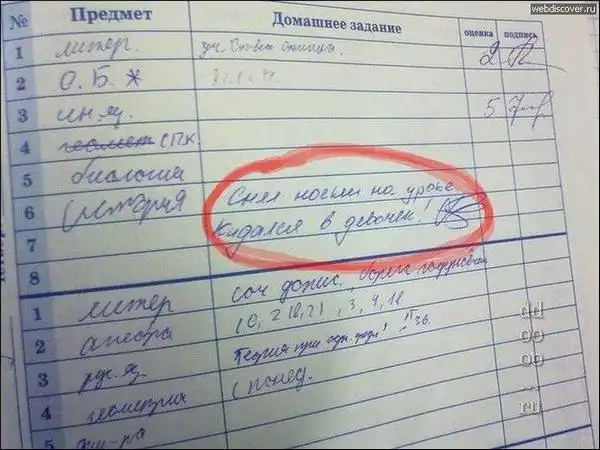 www.webdiscover.ru
№ Предмет Домашнее задание оценка подпись
1 литер. уч. 2
2 О.Б.Ж
3 ин. яз. 5
4 геомет спк.
5 биология
6 история Снял носки на уроке.
7 Кидался в девочек!
8
1 литер соч допис.
2 алгебра
3 рус. яз. Теория при 36.
4 геометрия с понед.
5 физ-ра
dd
oo
oo
..
ru